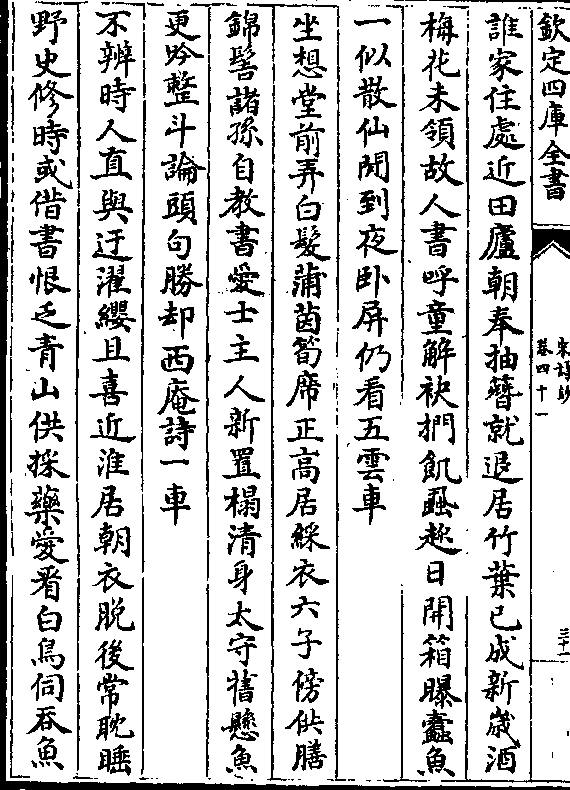 欽定四庫全書
宋詩鈔
卷四十一
三十二
誰家住處近田廬朝奉抽簪就退居竹葉已成新歲酒
梅花未領故人書呼童解袂捫飢蝨趂日開箱曝蠹魚
一似散仙閒到夜卧屏仍看五雲車
坐想堂前弄白髪蒲茵筍席正高居綵衣六子傍供膳
錦髻諸孫自教書愛士主人新置榻清身太守舊懸魚
更吟整斗論頭句勝却西庵詩一車
不辨時人直與迂濯纓且喜近淮居朝衣脱後常耽睡
野史修時或借書恨乏青山供採藥愛看白鳥伺吞魚